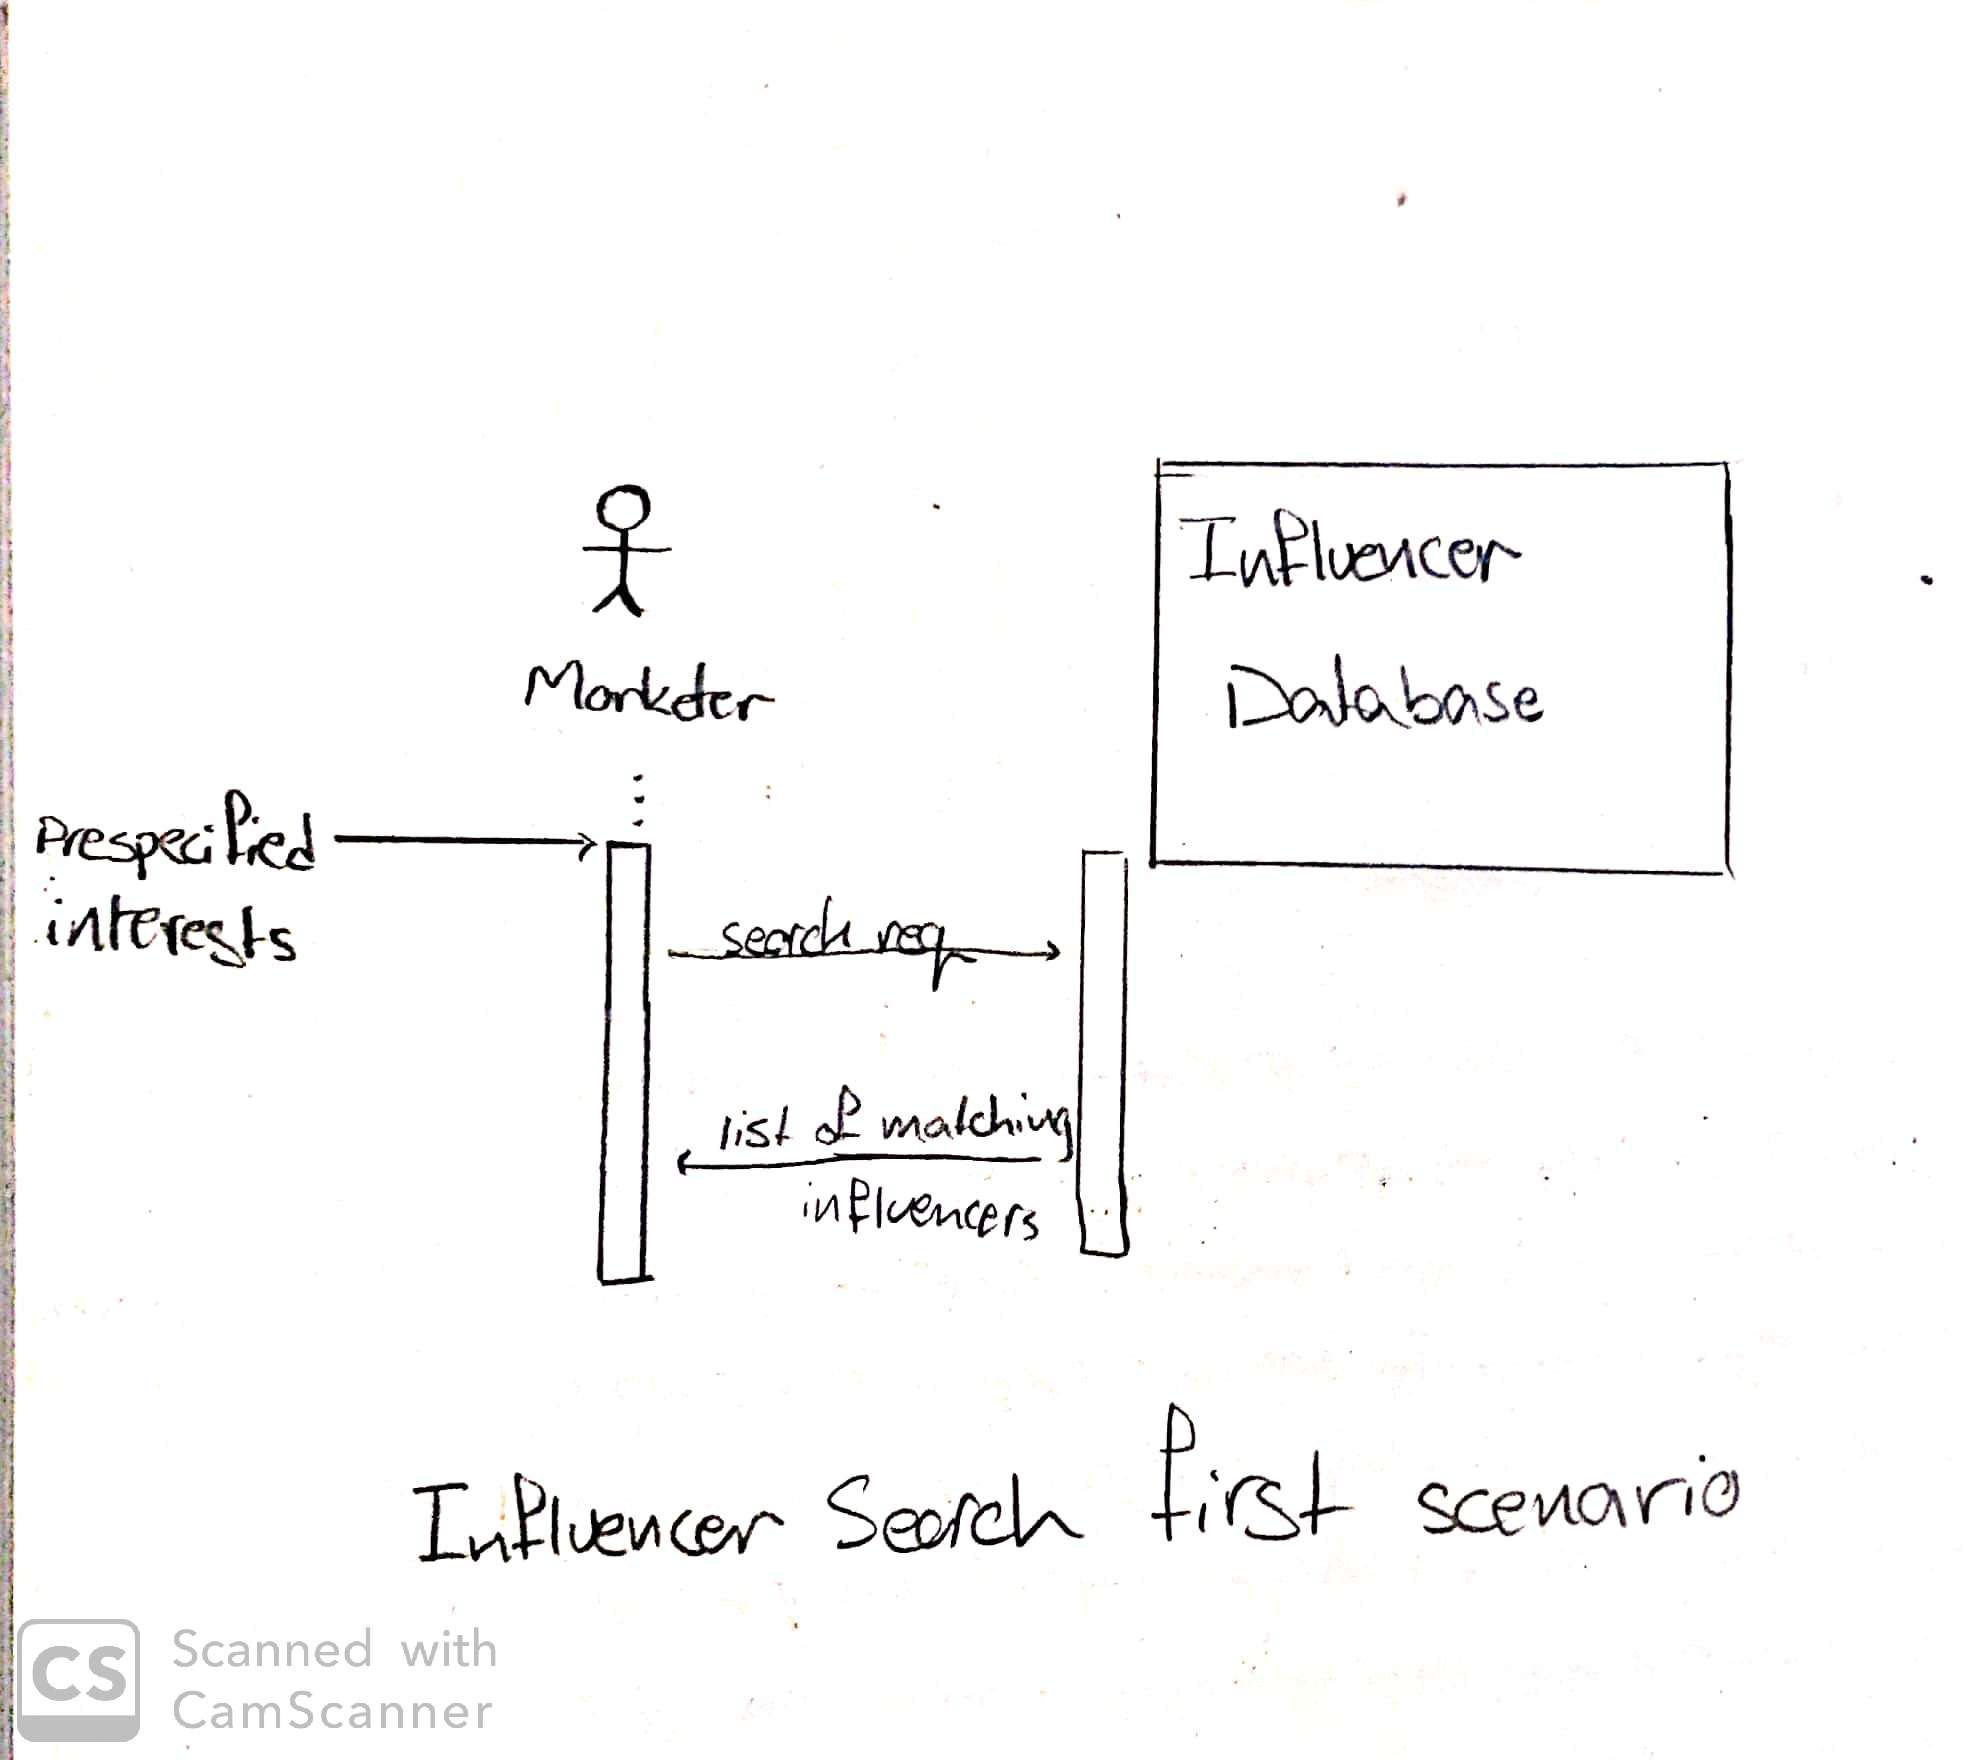 Influencer
Database
Marketer
Prespecified
interests
search req
list of matching
influencers
Influencer Search first scenario
CS
Scanned with
CamScanner